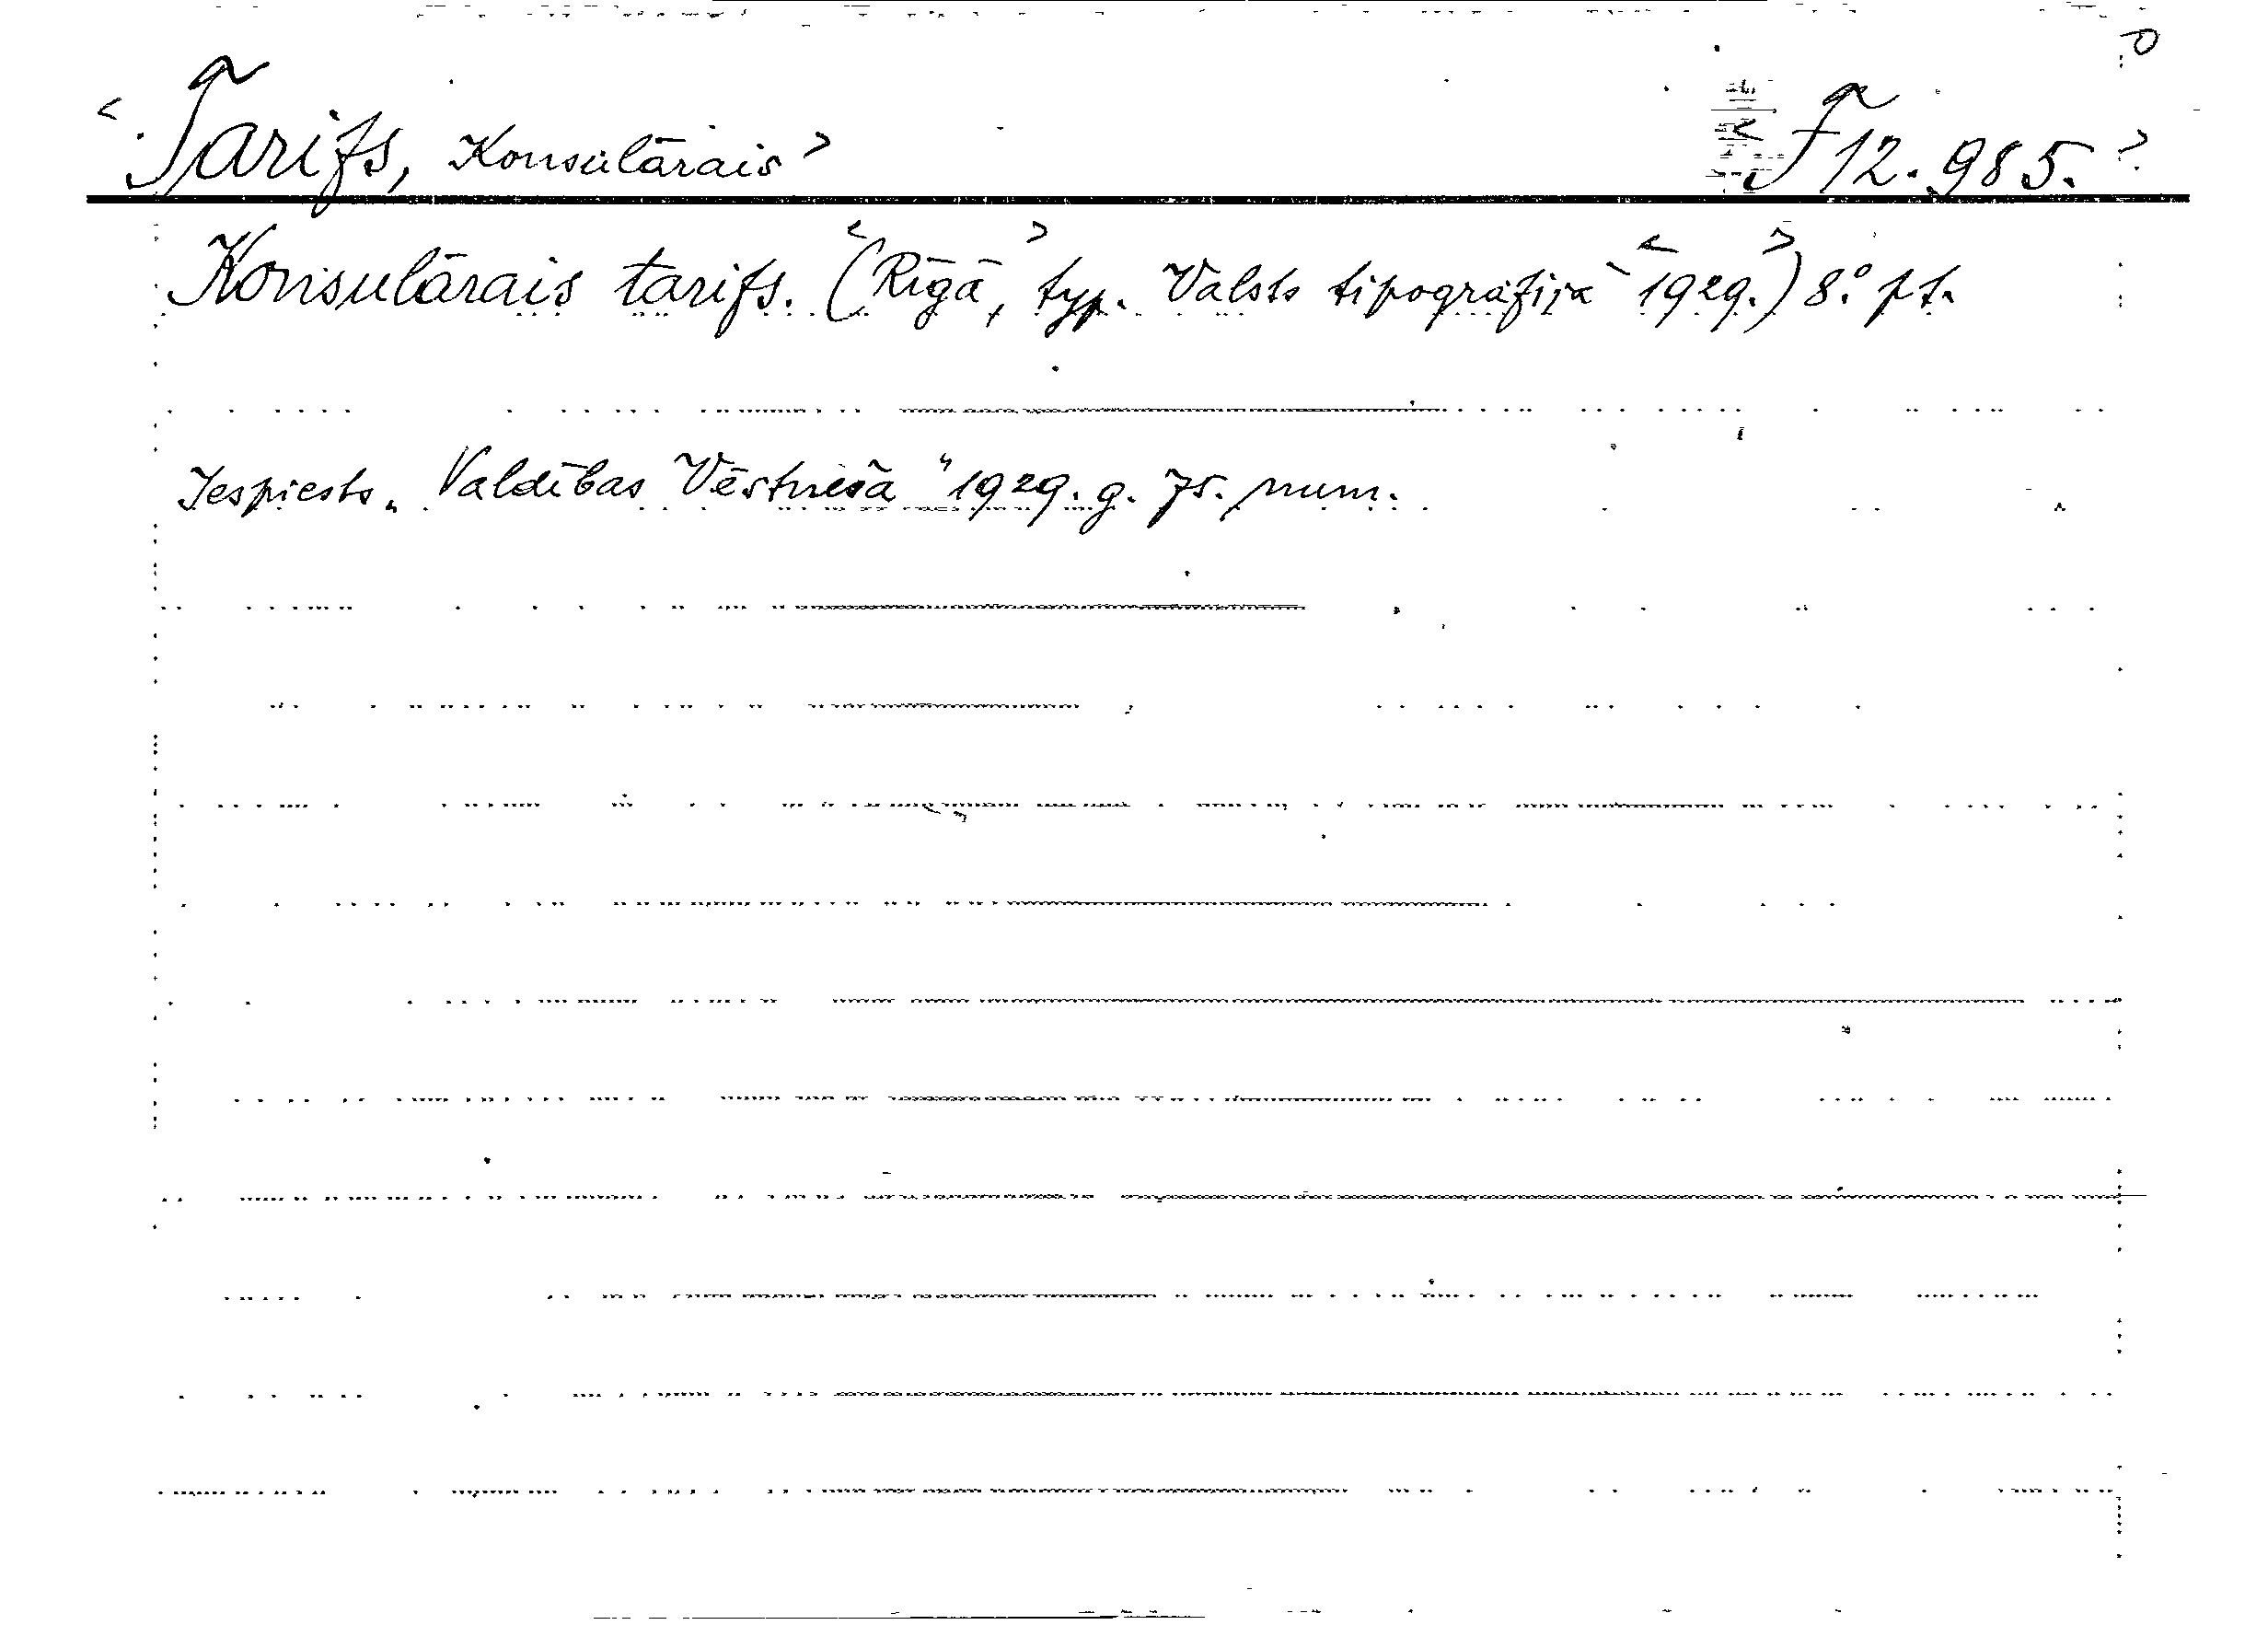 <Tarifs, Konsulārais> <F12.985.>
Konsulārais tarifs. (<Rīgā>, typ. Valsts tipografijā <1929.>) 8.° pt.
Iespiests „Valdības Vēstnesā" 1929. g. 75. num.